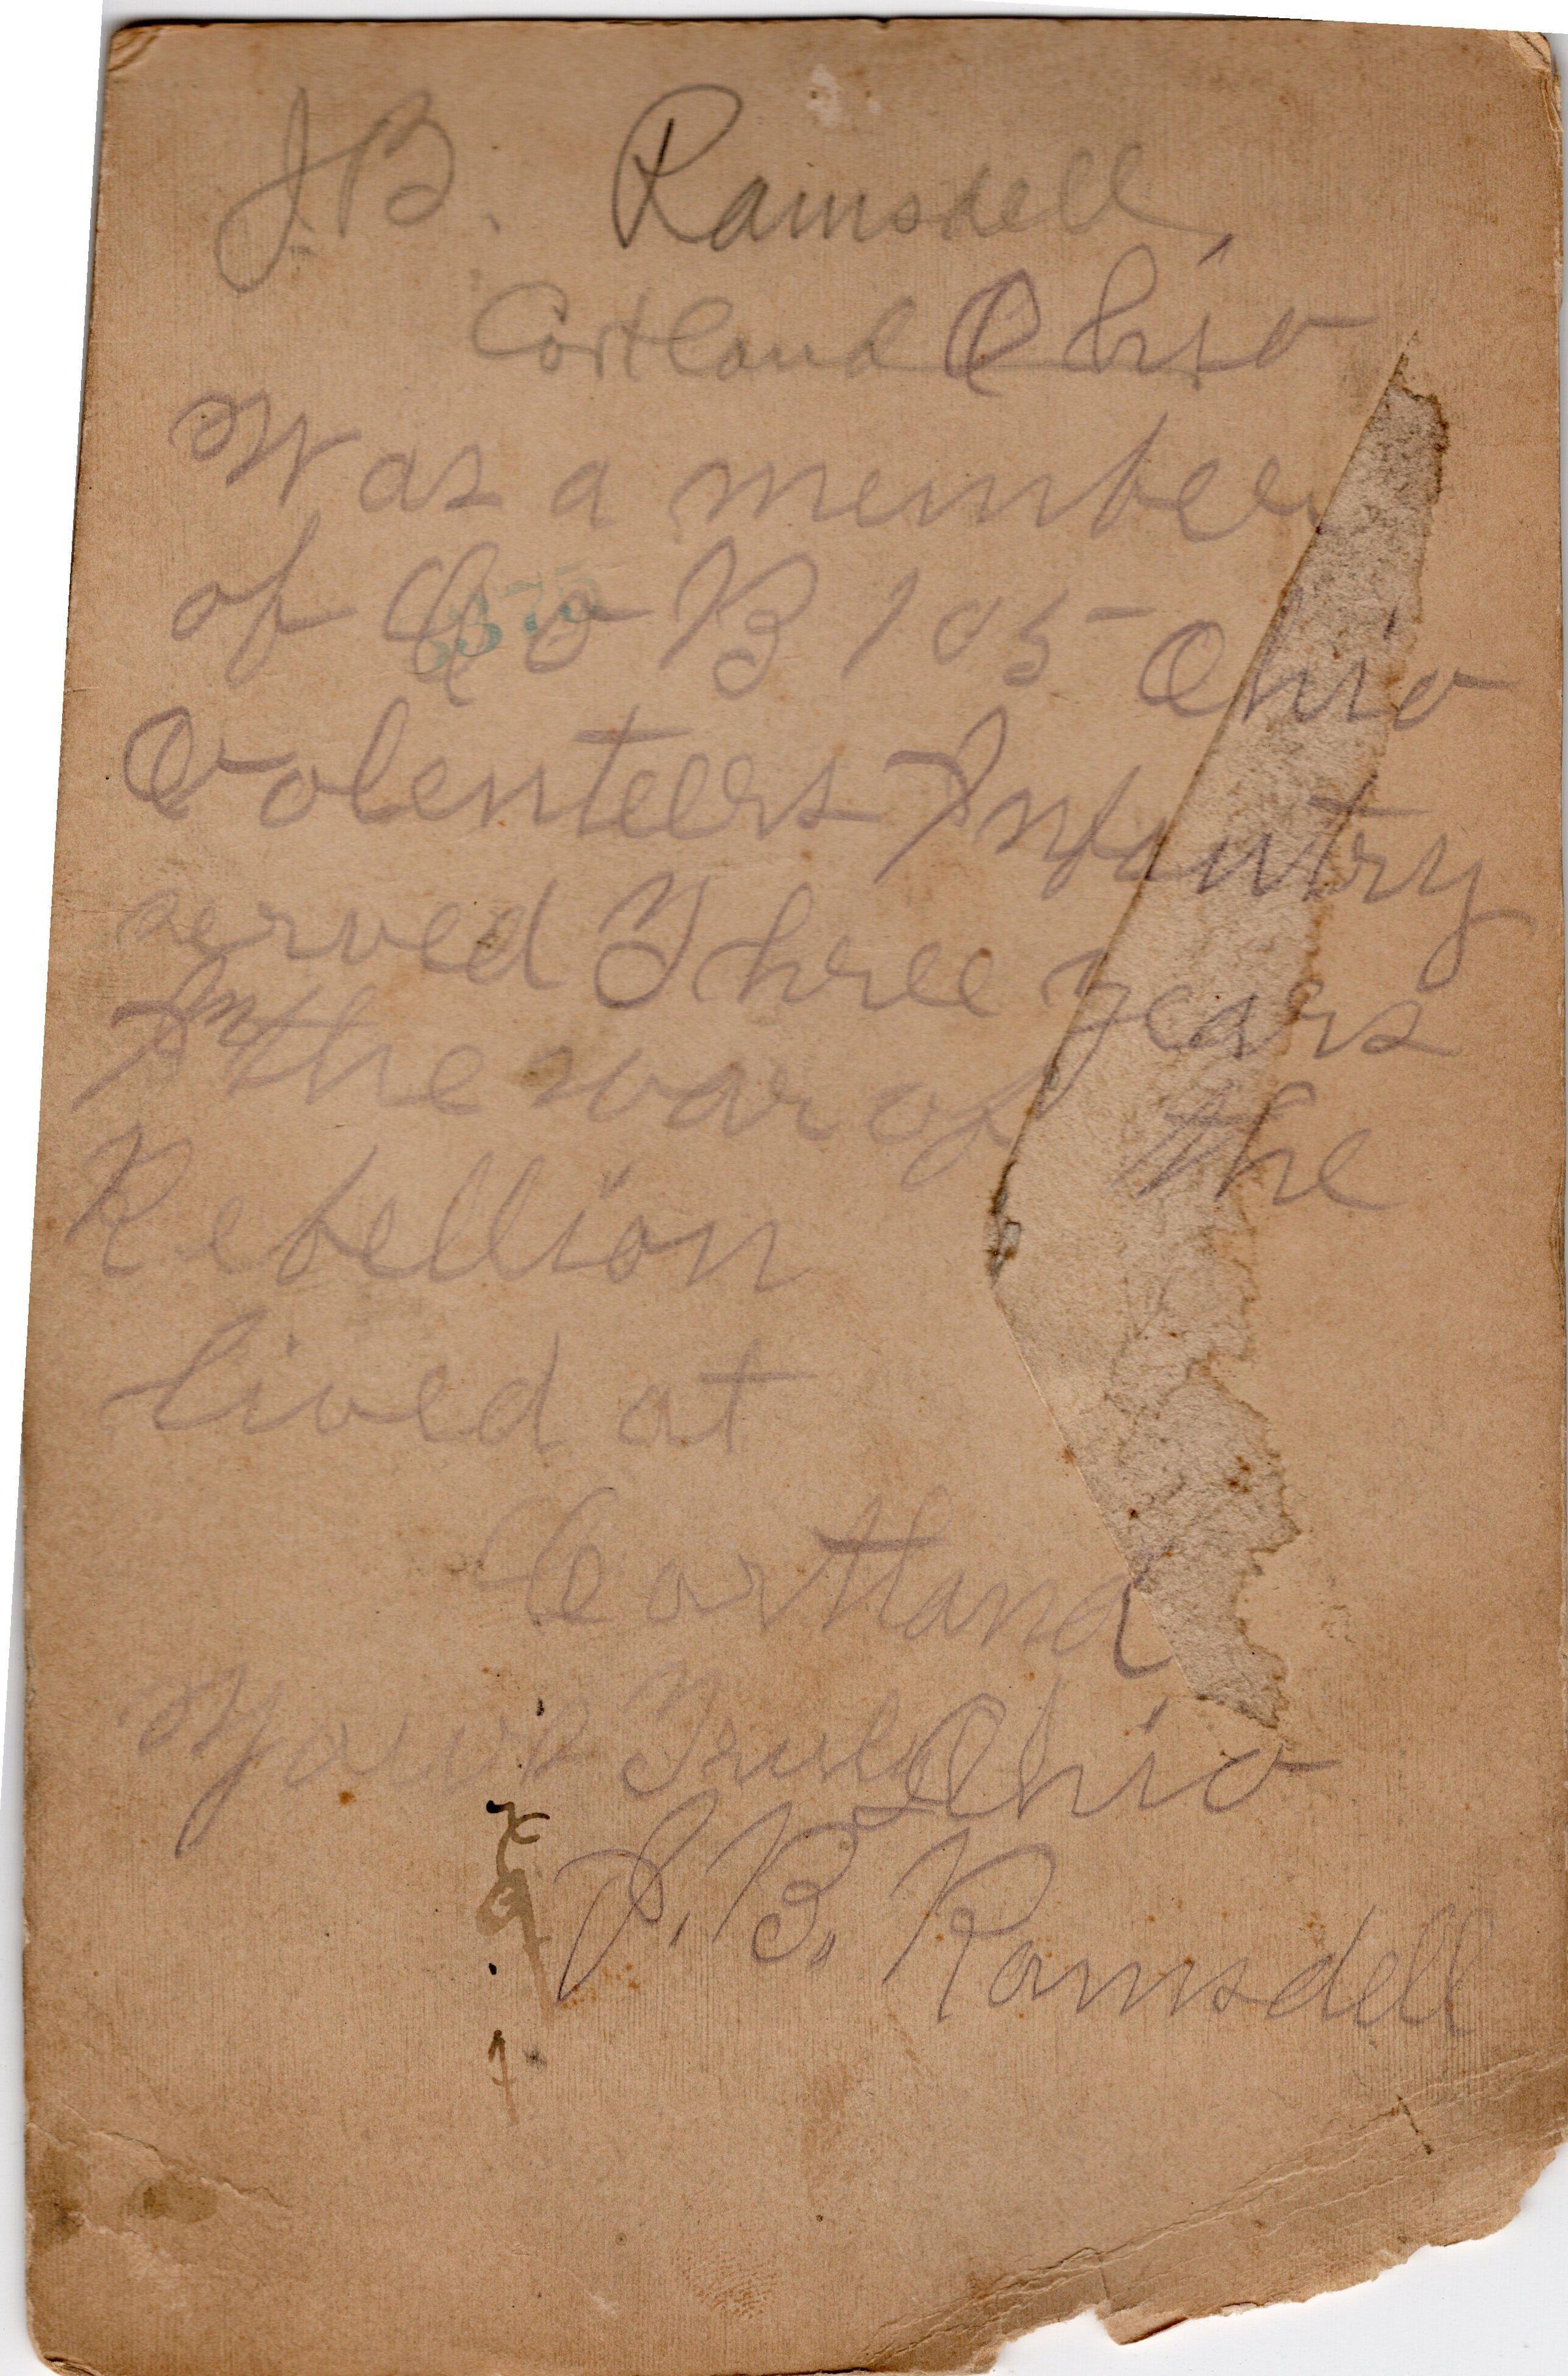 J.B. Ramsdell,
Cortland Ohio
Was a member
of Co B 105 Ohio
Volenteers Infantry
served Three years
In the war of the
Rebellion
lived at
Cortland
Ohio
Yours Truly
J. B. Ramsdell